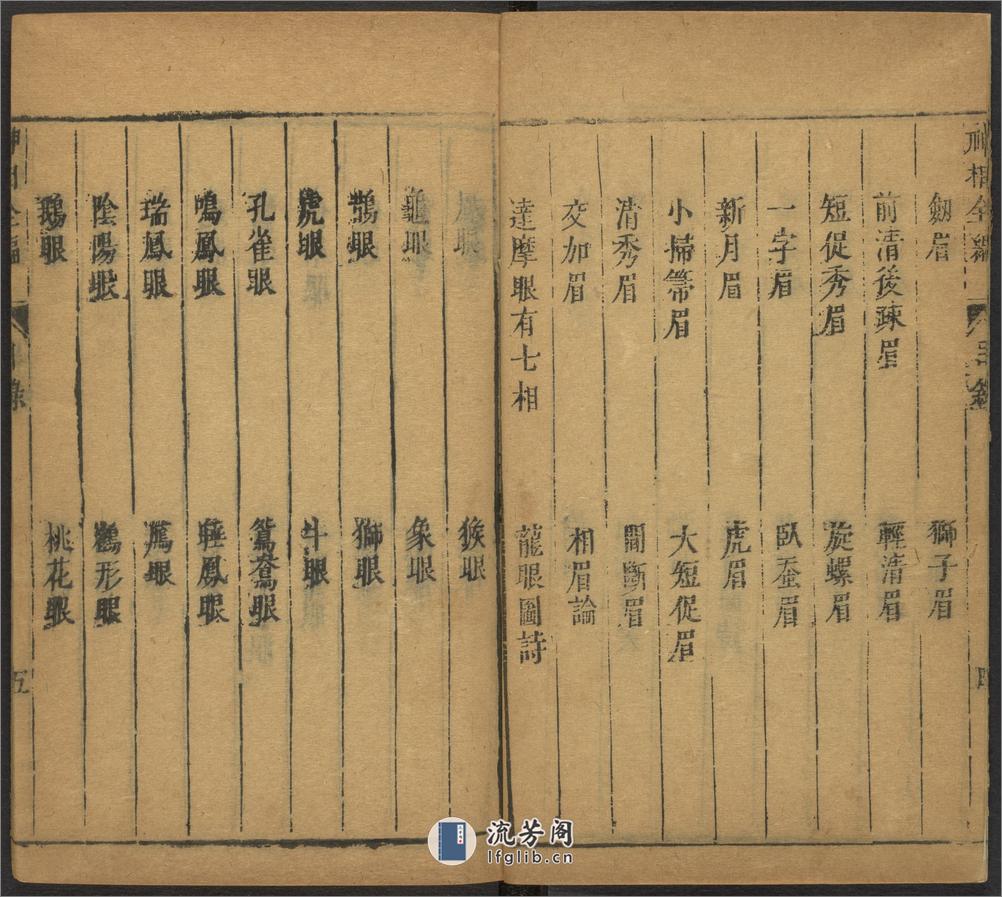 神相全編 目錄 四
劔眉 獅子眉
前清後疎眉 輕清眉
短促秀眉 旋螺眉
一字眉 臥蚕眉
新月眉 虎眉
小掃箒眉 大短促眉
清秀眉 間斷眉
交加眉 相眉論
達摩眼有七相 龍眼圖詩
眼 猴眼
龜眼 象眼
鵲眼 獅眼
虎眼 牛眼
孔雀眼 鴛鴦眼
鳴鳳眼 睡鳳眼
瑞鳳眼 鴈眼
陰陽眼 鶴形眼
鵝眼 桃花眼
五
流芳阁
lfglib.cn